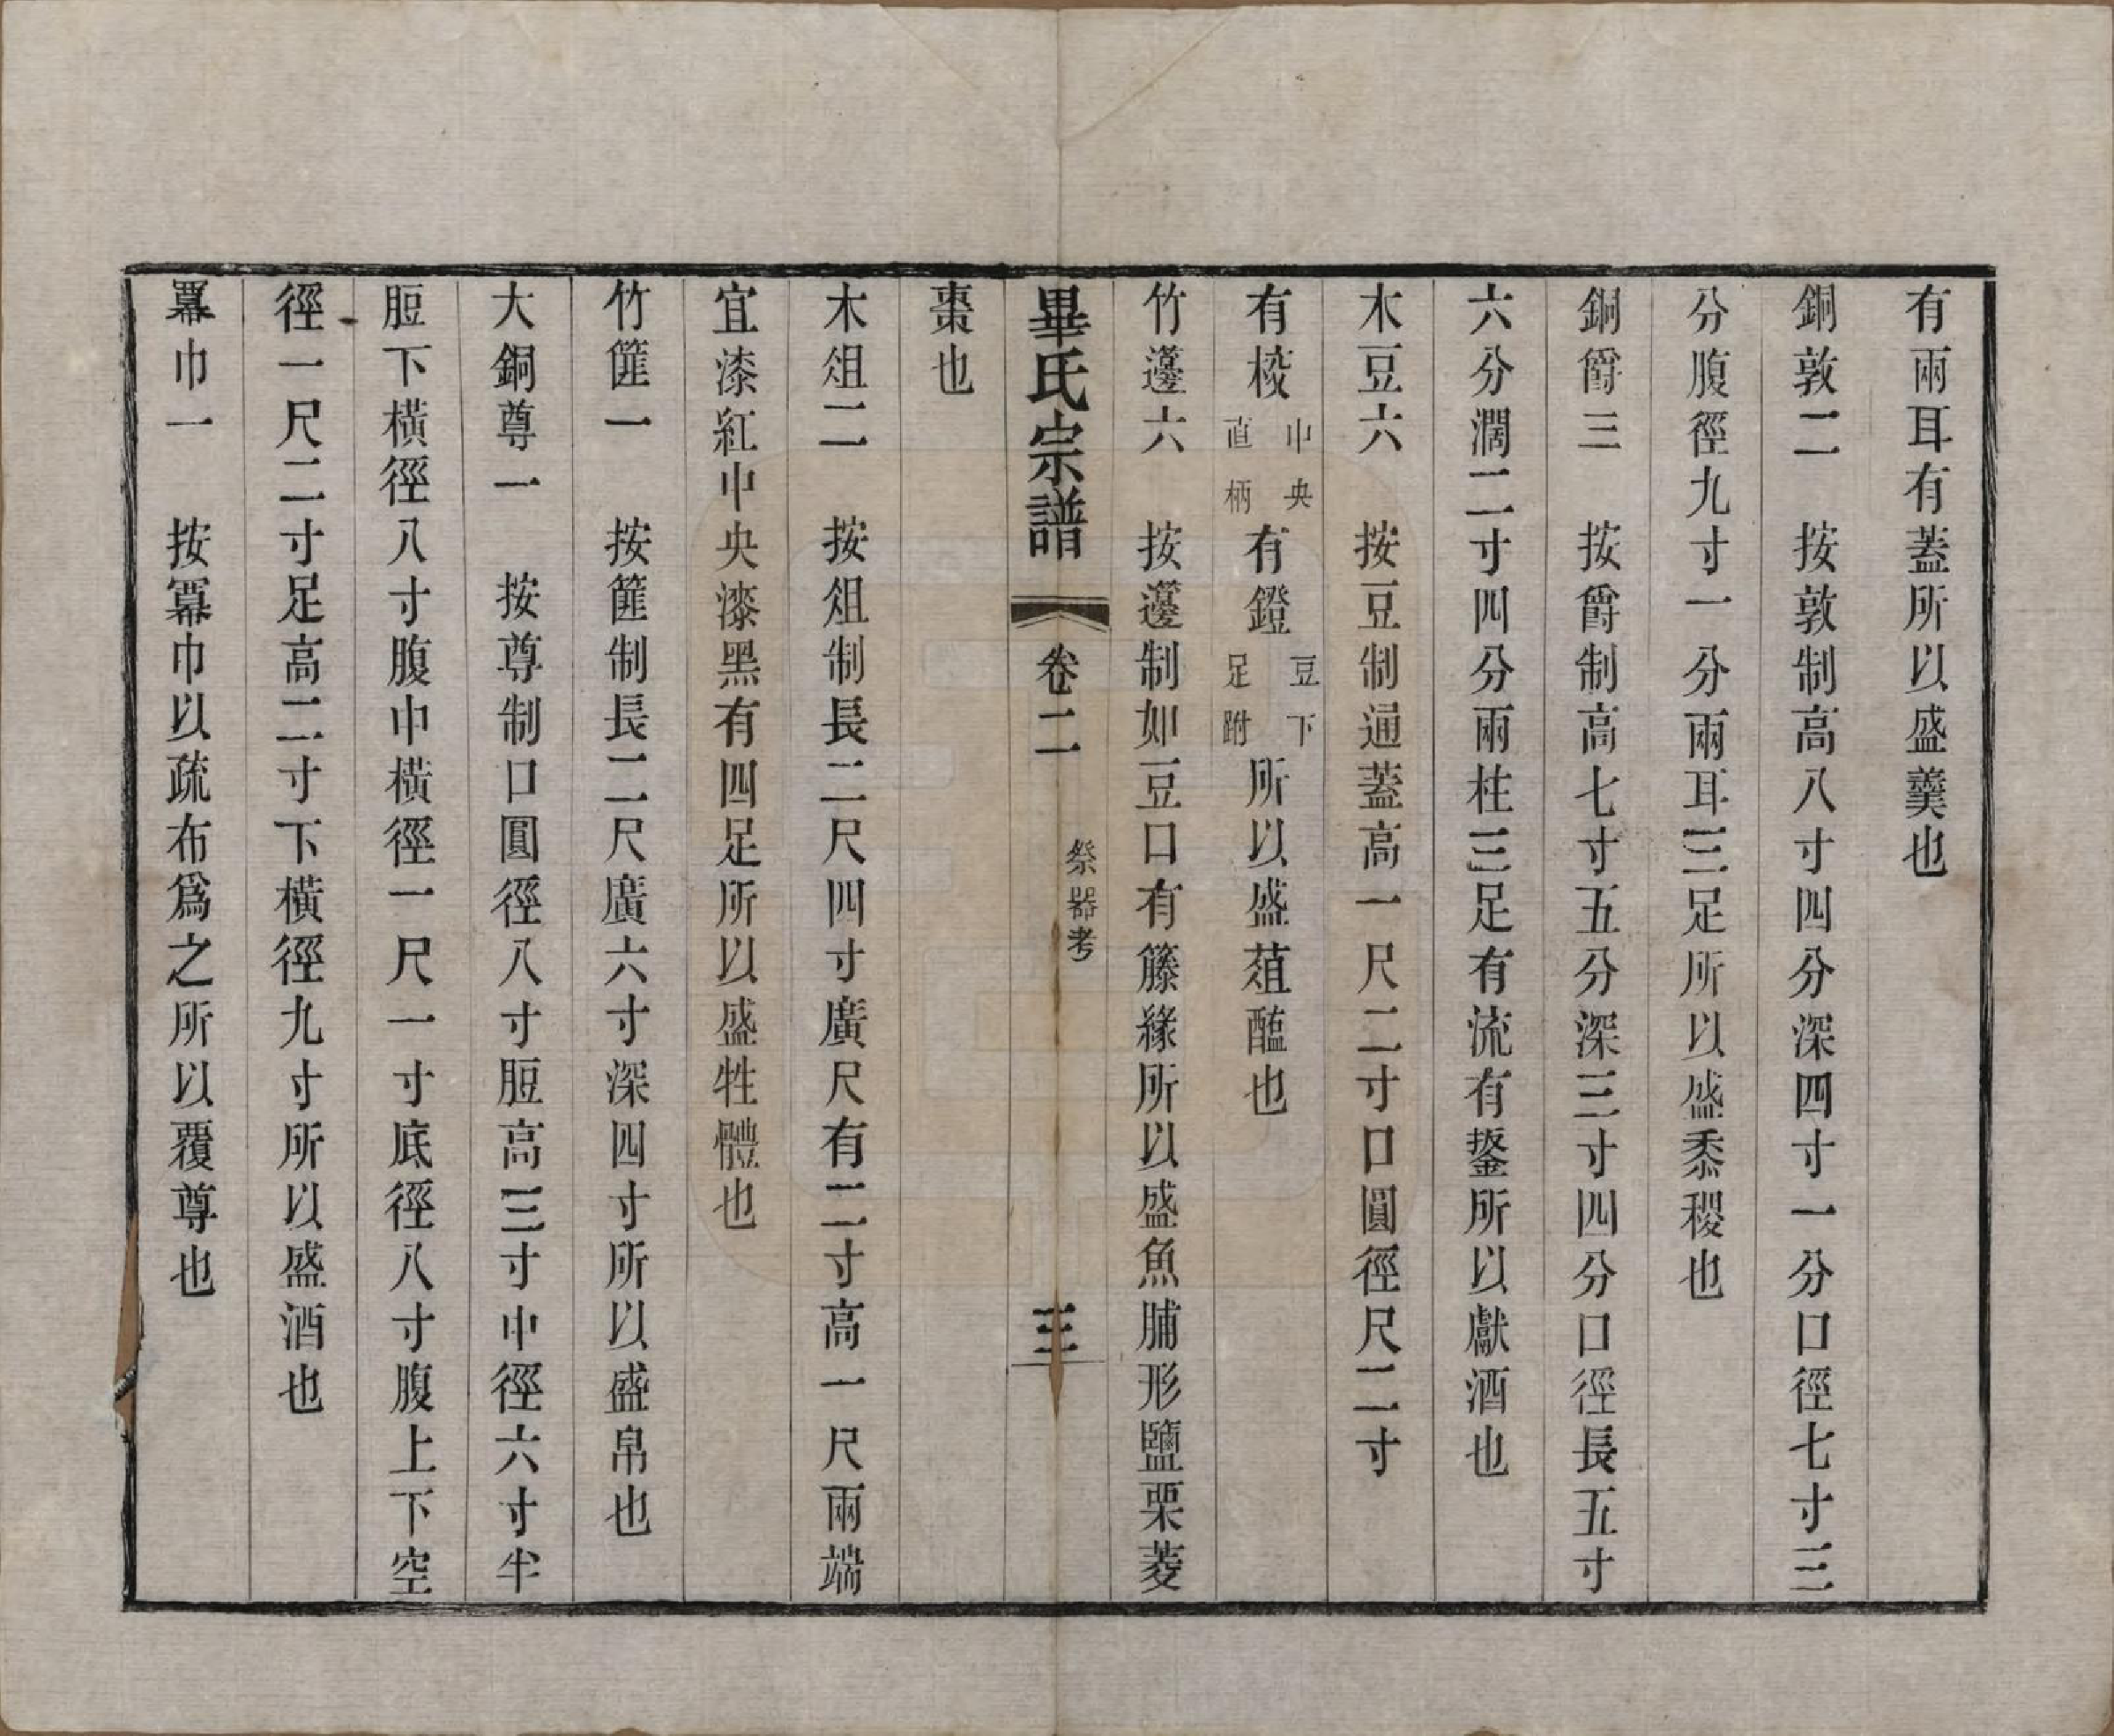 有兩耳有蓋所以盛羹也
銅敦二　按敦制高八寸四分深四寸一分口徑七寸三
分腹徑九寸一分兩耳三足所以盛黍稷也
銅爵三　按爵制高七寸五分深三寸四分口徑長五寸
六分濶二寸四分兩柱三足有流有鋬所以獻酒也
木豆六　按豆制通蓋高一尺二寸口圓徑尺二寸
有校中央直柄有鐙豆下足跗所以盛葅醢也
竹籩六　按籩制如豆口有籐緣所以盛魚脯形鹽栗菱
畢氏宗譜　卷二　祭器考　三
棗也
木俎二　按俎制長二尺四寸廣尺有二寸高一尺兩端
宜漆紅中央漆黑有四足所以盛牲體也
竹篚一　按篚制長二尺廣六寸深四寸所以盛帛也
大銅尊一　按尊制口圓徑八寸脰高三寸中徑六寸半
脰下橫徑八寸腹中橫徑一尺一寸底徑八寸腹上下空
徑一尺二寸足高二寸下橫徑九寸所以盛酒也
羃巾一　按冪巾以疏布爲之所以覆尊也